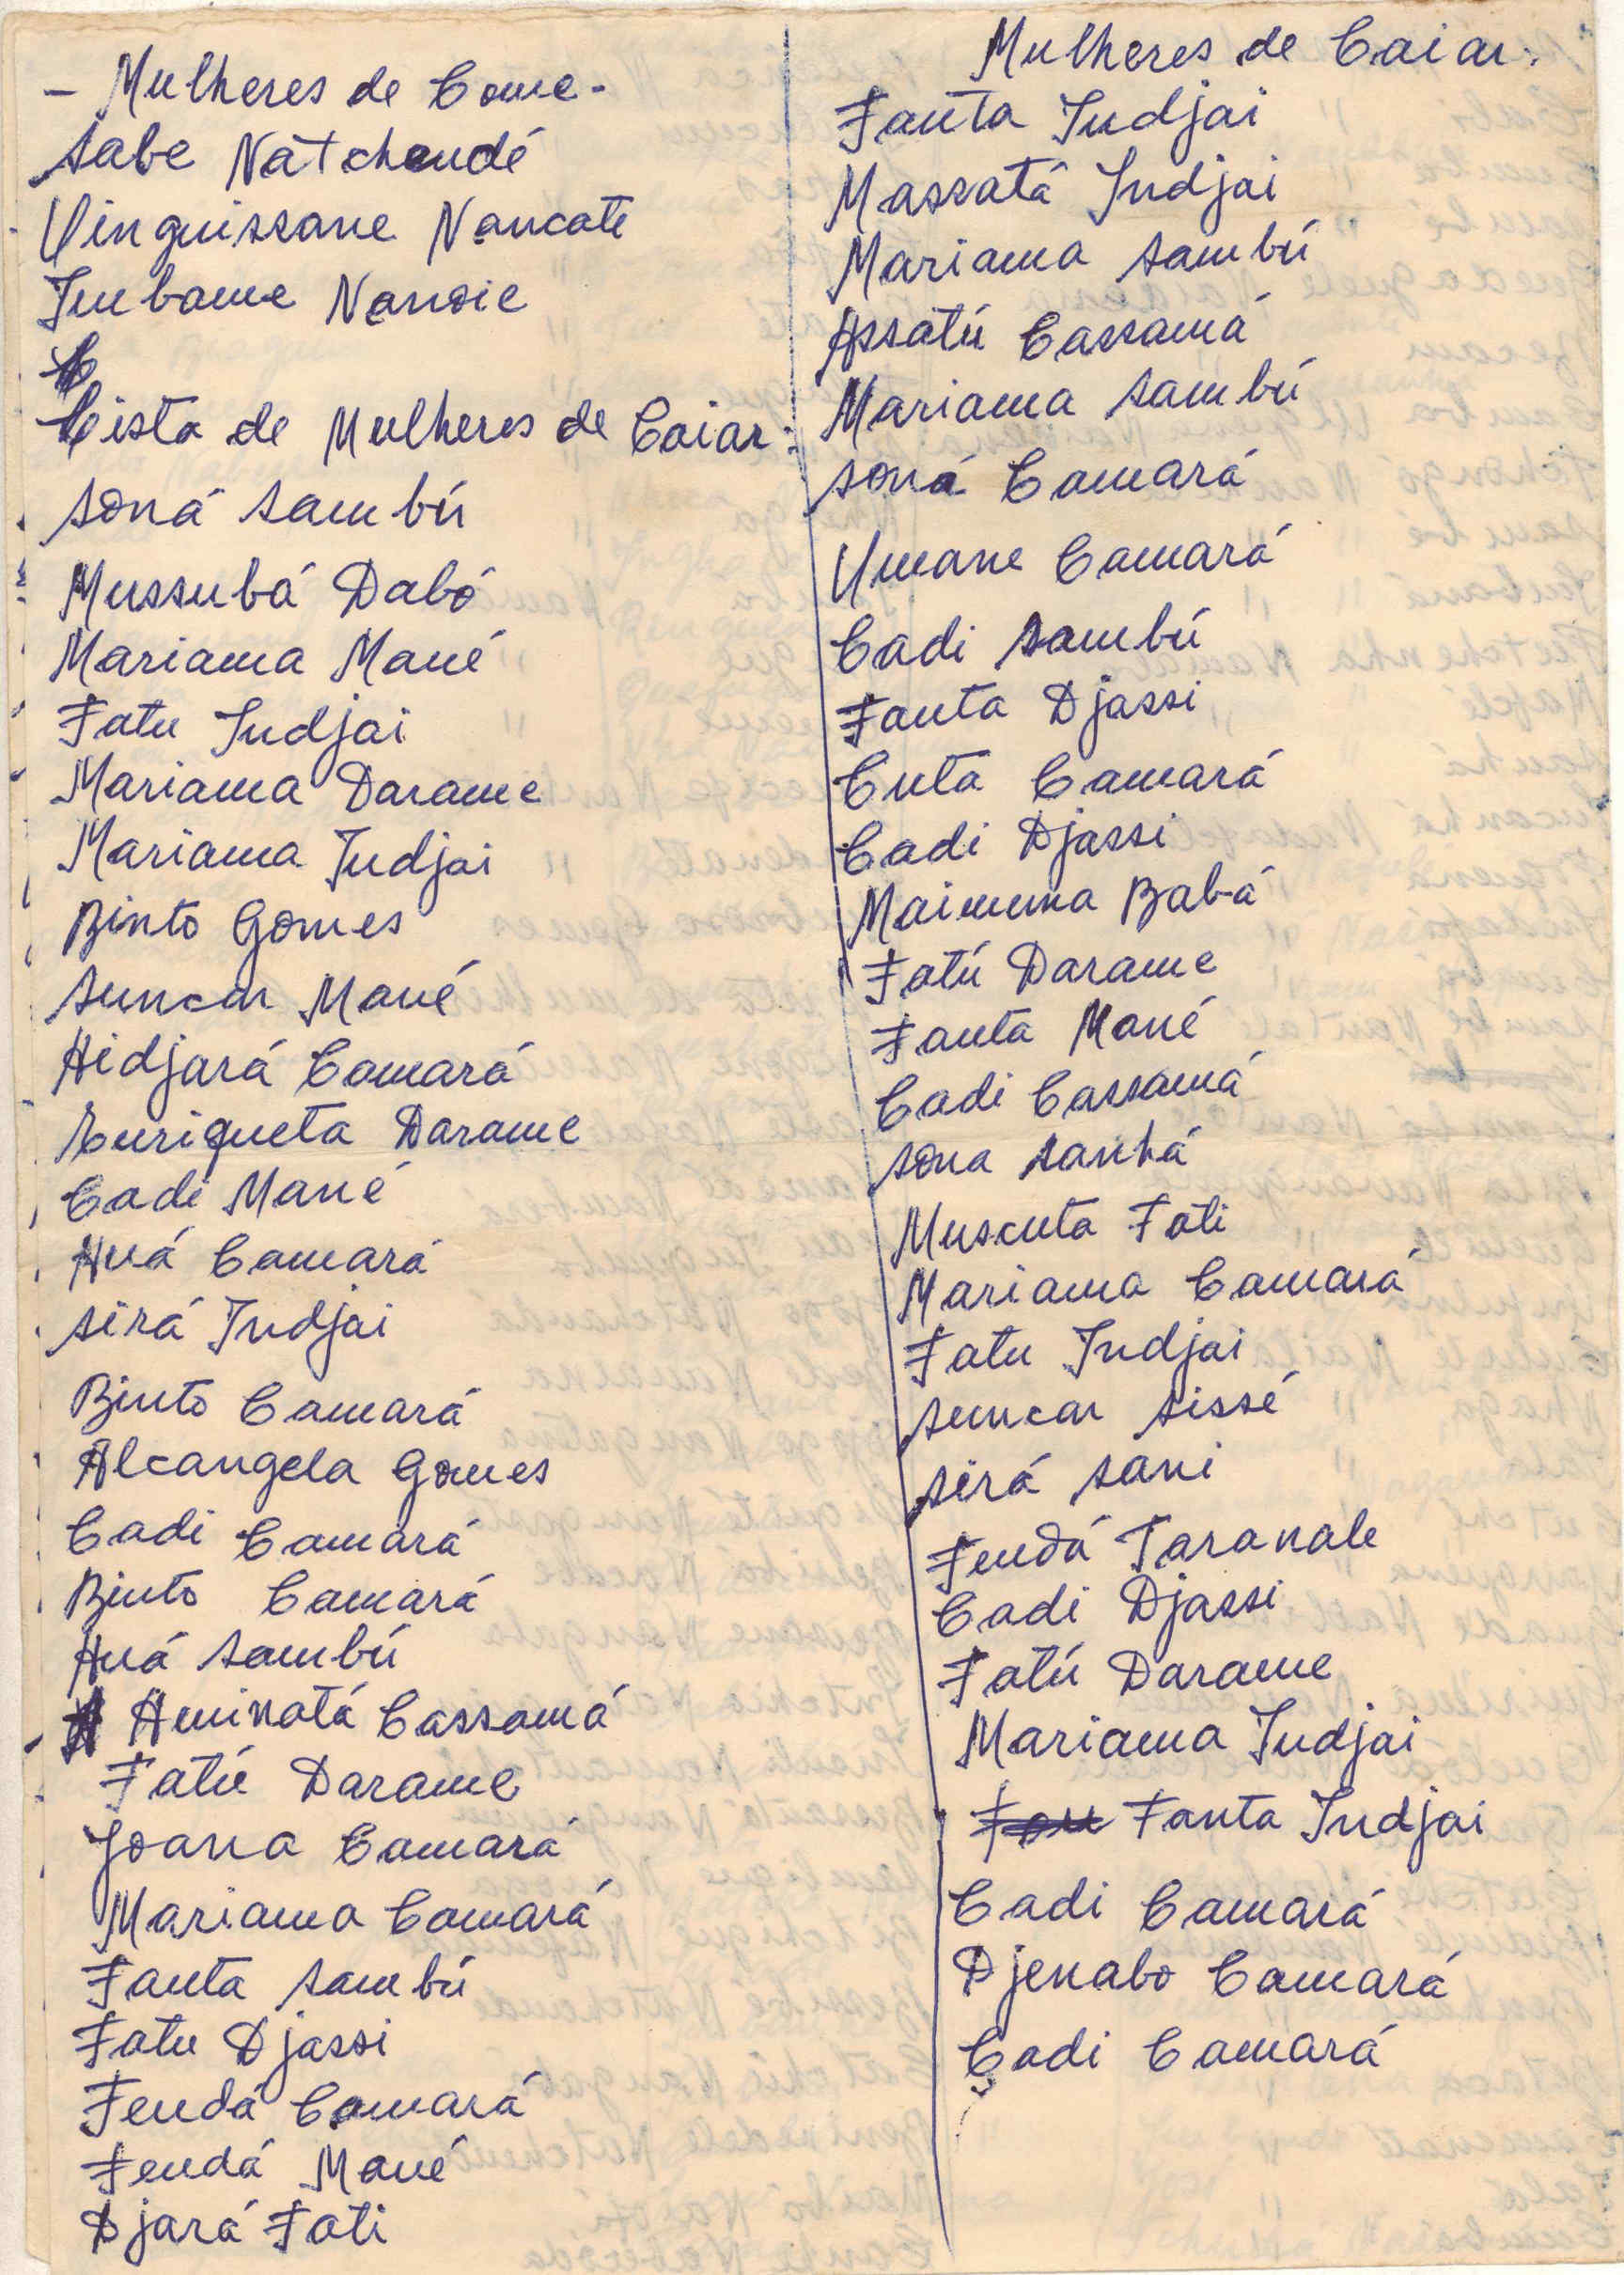 – Mulheres de Come –
Sabe Natchandé
Vinguissane Nancate
Imbame Nandie
Lista de Mulheres de Caiar:
Soná Sambú
Mussubá Dabó
Mariama Mané
Fatu Indjai
Mariama Darame
Mariama Indjai
Binto Gomes
Suncar Mané
Hidjará Camará
Enriqueta Darame
Cadi Mané
Auá Camará
Sirá Indjai
Binto Camará
Alcangela Gomes
Cadi Camará
Binto Camará
Auá Sambú
Aminatá Cassamá
Fatú Darame
Joana Camará
Mariama Camará
Fanta Sambú
Fatu Djassi
Fendá Camará
Fendá Mané
Djará Fati
Mulheres de Caiar.
Fanta Indjai
Massatá Indjai
Mariama Sambú
Assatú Cassamá
Mariama Sambú
Soná Camará
Umane Camará
Cadi Sambú
Fanta Djassi
Cuta Camará
Cadi Djassi
Maimuna Babá
Fatú Darame
Fanta Mané
Cadi Cassamá
Sona Sanhá
Muscuta Fati
Mariama Camará
Fatu Indjai
Suncar Sissé
Sirá Sani
Fendá Taranale
Cadi Djassi
Fatú Darame
Mariama Indjai
Fanta Indjai
Cadi Camará
Djenabo Camará
Cadi Camará